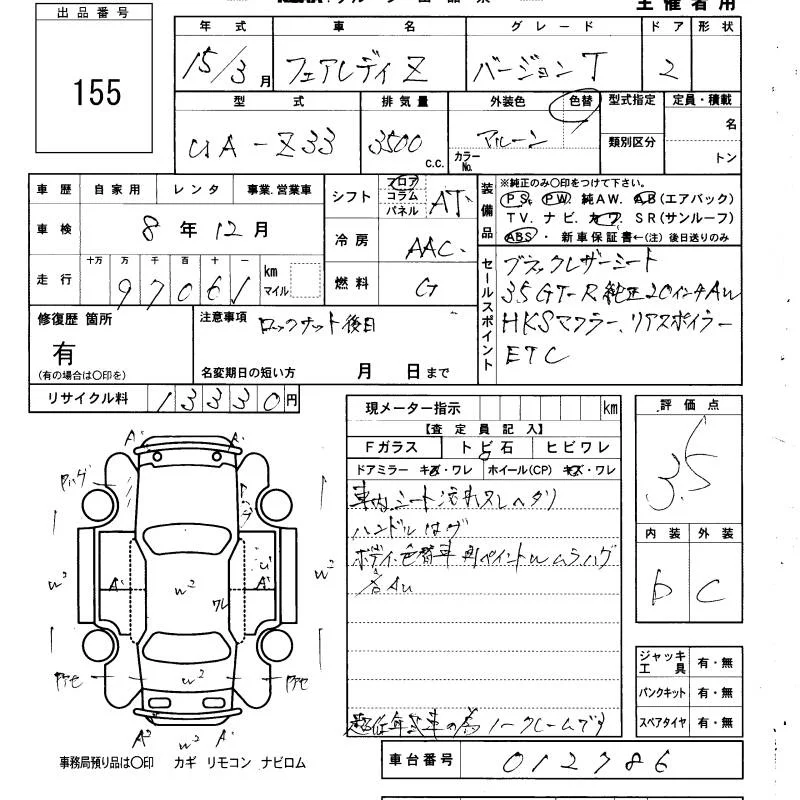 主催者用
出品番号
155
年式 車名 グレード ドア 形状
15/3月 フェアレディZ バージョンT 2
型式 排気量 外装色 色替 型式指定 定員・積載
UA-Z33 3500 c.c. マルーン カラーNo. 類別区分 名 トン
車歴 自家用 レンタ 事業.営業車
車検 8年12月
走行 十万 万 千 百 十 一
97061 km マイル
シフト フロア コラム パネル AT
冷房 AAC
燃料 G
装備品
※純正のみ〇印をつけて下さい。
PS. PW. 純AW. AB(エアバック)
TV. ナビ. カワ. SR(サンルーフ)
ABS・新車保証書←(注)後日送りのみ
セールスポイント
ブラックレザーシート
35GT-R純正20インチAW
HKSマフラー、リアスポイラー
ETC
修復歴 箇所
有
(有の場合は〇印を)
注意事項 ロックナット後日
名変期日の短い方 月 日まで
リサイクル料 13330円
現メーター指示 km
【査定員記入】
Fガラス トビ石 ヒビワレ
ドアミラー キズ・ワレ ホイール(CP) キズ・ワレ
車内シート汚れスレヘタリ
ハンドルハゲ
ボディ色替車 再ペイントWムラハゲ
超低年式車の為ノークレームです
評価点
3.5
内装 外装
b C
ジャッキ工具 有・無
パンクキット 有・無
スペアタイヤ 有・無
A' A'
ハゲ
W³ A' W² A' W²
ワレ
W²
A² W² A'
事務局預り品は〇印 カギ リモコン ナビロム
車台番号 012786